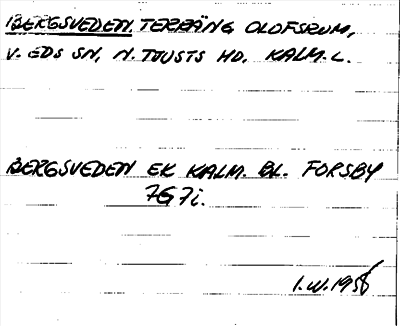 BERGSVEDEN. TERRÄNG OLOFSRUM,
V. EDS SN, N. TJUSTS HD, KALM. L.
BERGSVEDEN EK KALM. BL. FORSBY
7G 7i.
1.W.1956